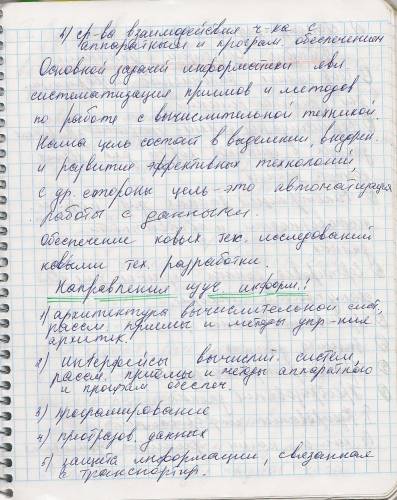 4) ср-ва взаимодействия ч-ка с
аппаратным и програм. обеспечением
Основной задачей информатики явл.
систематизация приёмов и методов
по работе с вычислительной техникой.
Наша цель состоит в выделении, внедрен.
и развитие эффективных технологий,
с др. стороны цель - это автоматизация
работы с данными.
Обеспечение новых тех. исследований
новыми тех. разработки.
Направления изуч. информ.:
1) архитектура вычислительной сист.,
рассм. приёмы и методы упр-ния
архитек.
2) интерфейсы вычислит. систем,
рассм. приёмы и методы аппаратного
и програм обеспеч.
3) программирование
4) преобразов. данных
5) защита информации, связанная
с транспортир.